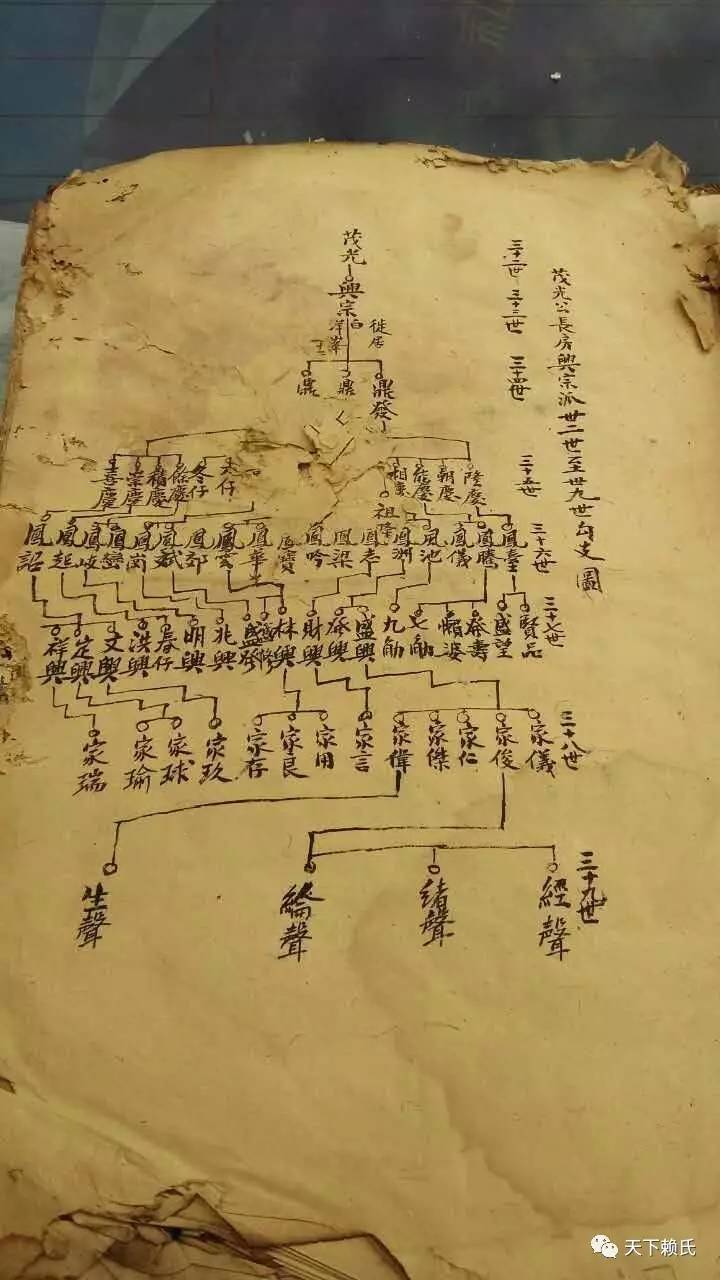 茂光公長房興宗派卅二世至卅九世分支圖
三十二世
三十三世
三十四世
三十五世
三十六世
三十七世
三十八世
三十九世
茂光
興宗
徙居
鼎發
鼎
鼎
隆慶
朝慶
能慶
相慶
祖隆
冬仔
福慶
崇慶
喜慶
鳳臺
鳳騰
鳳儀
鳳池
鳳洲
鳳志
鳳梁
鳳吟
鳳華
鳳雲
鳳郊
鳳岐
鳳起
鳳詔
賢品
盛望
發壽
懶婆
九觔
盛興
發興
財興
林興
盛發
兆興
明興
春仔
洪興
文興
定興
祥興
家儀
家俊
家仁
家傑
家偉
家言
家用
家良
家存
家玖
家球
家瑜
家瑞
經聲
緒聲
綸聲
生聲
天下赖氏